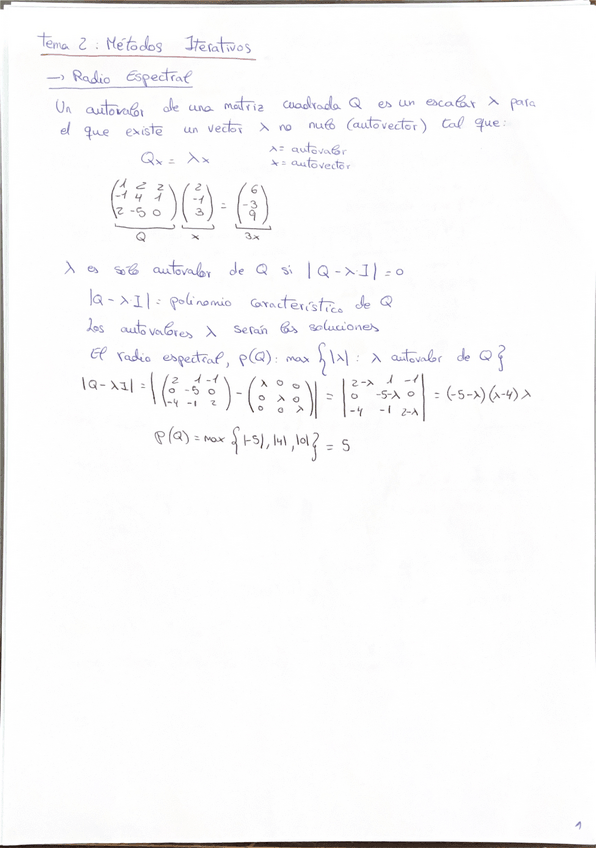 Tema 2: Métodos Iterativos
→ Radio Espectral
Un autovalor de una matriz cuadrada Q es un escalar λ para
el que existe un vector λ no nulo (autovector) tal que:
Qx = λx
λ = autovalor
x = autovector
(1 2 2
-1 4 1
2 -5 0) (2
-1
3) = (6
-3
9)
Q x 3x
λ es solo autovalor de Q si |Q-λ·I| = 0
|Q-λI| = polinomio característico de Q
Los autovalores λ serán las soluciones
El radio espectral, ρ(Q): max {|λ| : λ autovalor de Q}
|Q-λI| = |(2 1 -1
0 -5 0
-4 -1 2) - (λ 0 0
0 λ 0
0 0 λ)| = |2-λ 1 -1
0 -5-λ 0
-4 -1 2-λ| = (-5-λ)(λ-4)λ
ρ(Q) = max {|-5|, |4|, |0|} = 5
1